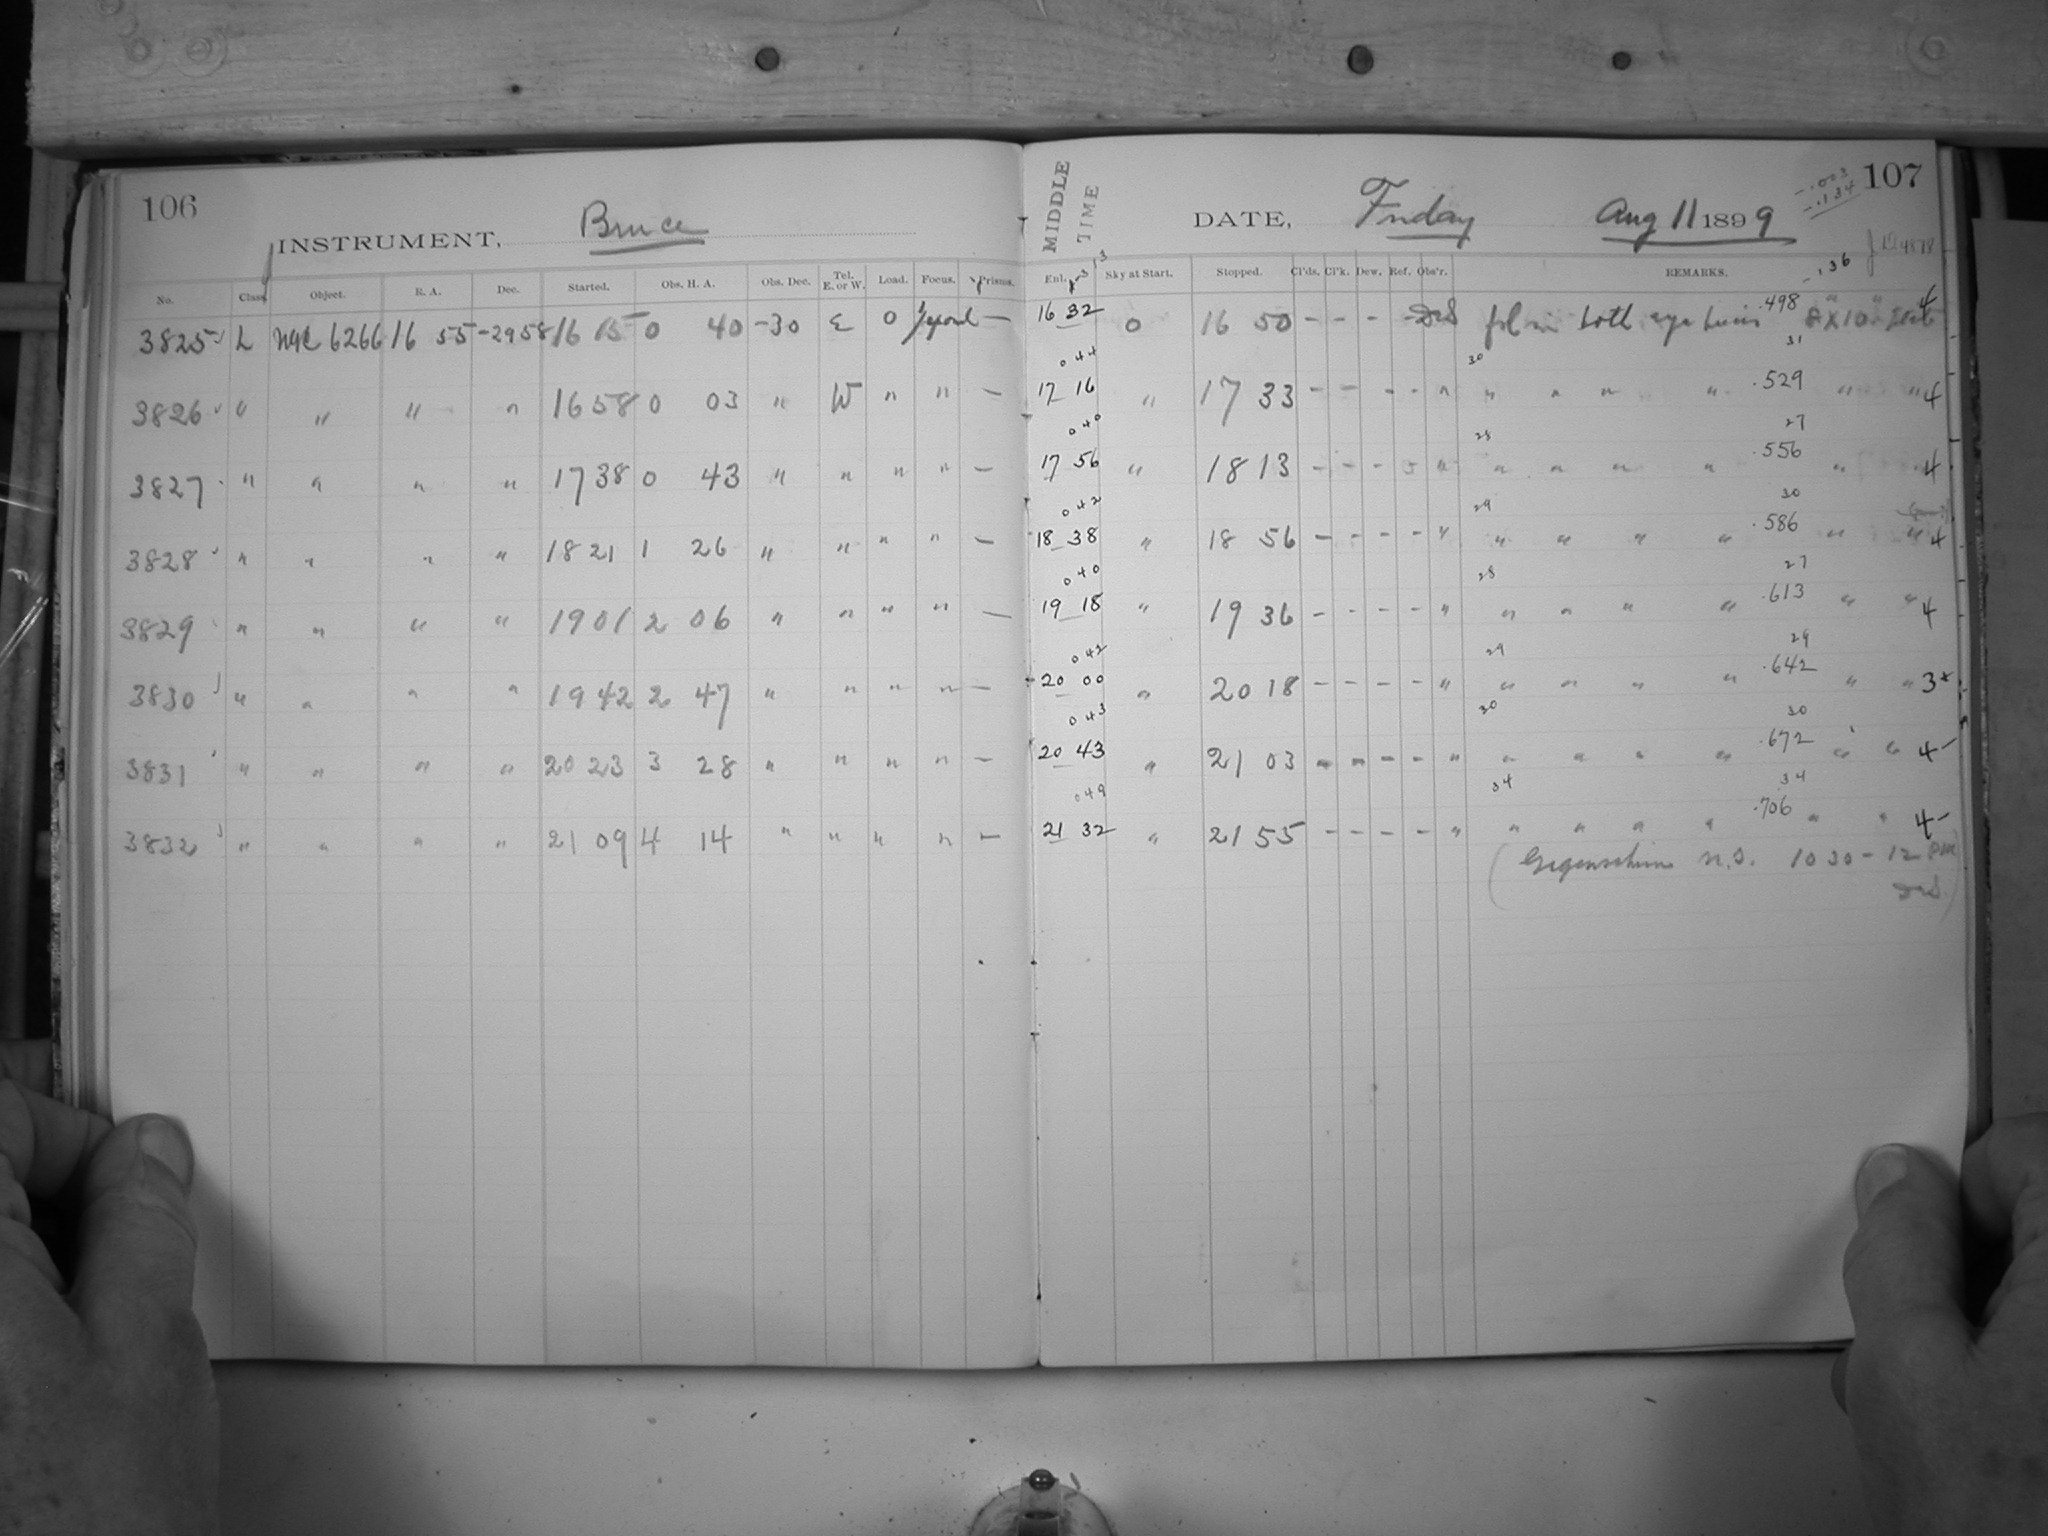 106
INSTRUMENT, Bruce
No. Class. Object. R. A. Dec. Started. Obs. H. A. Obs. Dec. Tel. E. or W. Load. Focus. Prisms.
3825 L NGC 6266 16 55 -29 58 16 15 0 40 -30 E 0 —
3826 " " " " 16 58 0 03 " W " " —
3827 " " " " 17 38 0 43 " " " " —
3828 " " " " 18 21 1 26 " " " " —
3829 " " " " 19 01 2 06 " " " " —
3830 " " " " 19 42 2 47 " " " " —
3831 " " " " 20 23 3 28 " " " " —
3832 " " " " 21 09 4 14 " " " " —
MIDDLE TIME
107
-.003
-.134
DATE, Friday Aug 11 1899
-.136
Enl. Sky at Start. Stopped. Cl'ds. Cl'k. Dew. Ref. Obs'r. REMARKS.
16 32 0 16 50 - - - - both eye .498 8 X 10 4
044 30 31
17 16 " 17 33 - - - - " " " " " .529 " " 4
040 28 27
17 56 " 18 13 - - - - " " " " " .556 " 4
042 29 30
18 38 " 18 56 - - - - " " " " " .586 " " 4
040 28 27
19 18 " 19 36 - - - - " " " " " .613 " " 4
042 29 29
20 00 " 20 18 - - - - " " " " " .642 " " 3+
043 30 30
20 43 " 21 03 - - - - " " " " " .672 " " 4-
049 34 34
21 32 " 21 55 - - - - " " " " " .706 " " 4-
(Gegenschein n.s. 10 30 - 12 PM